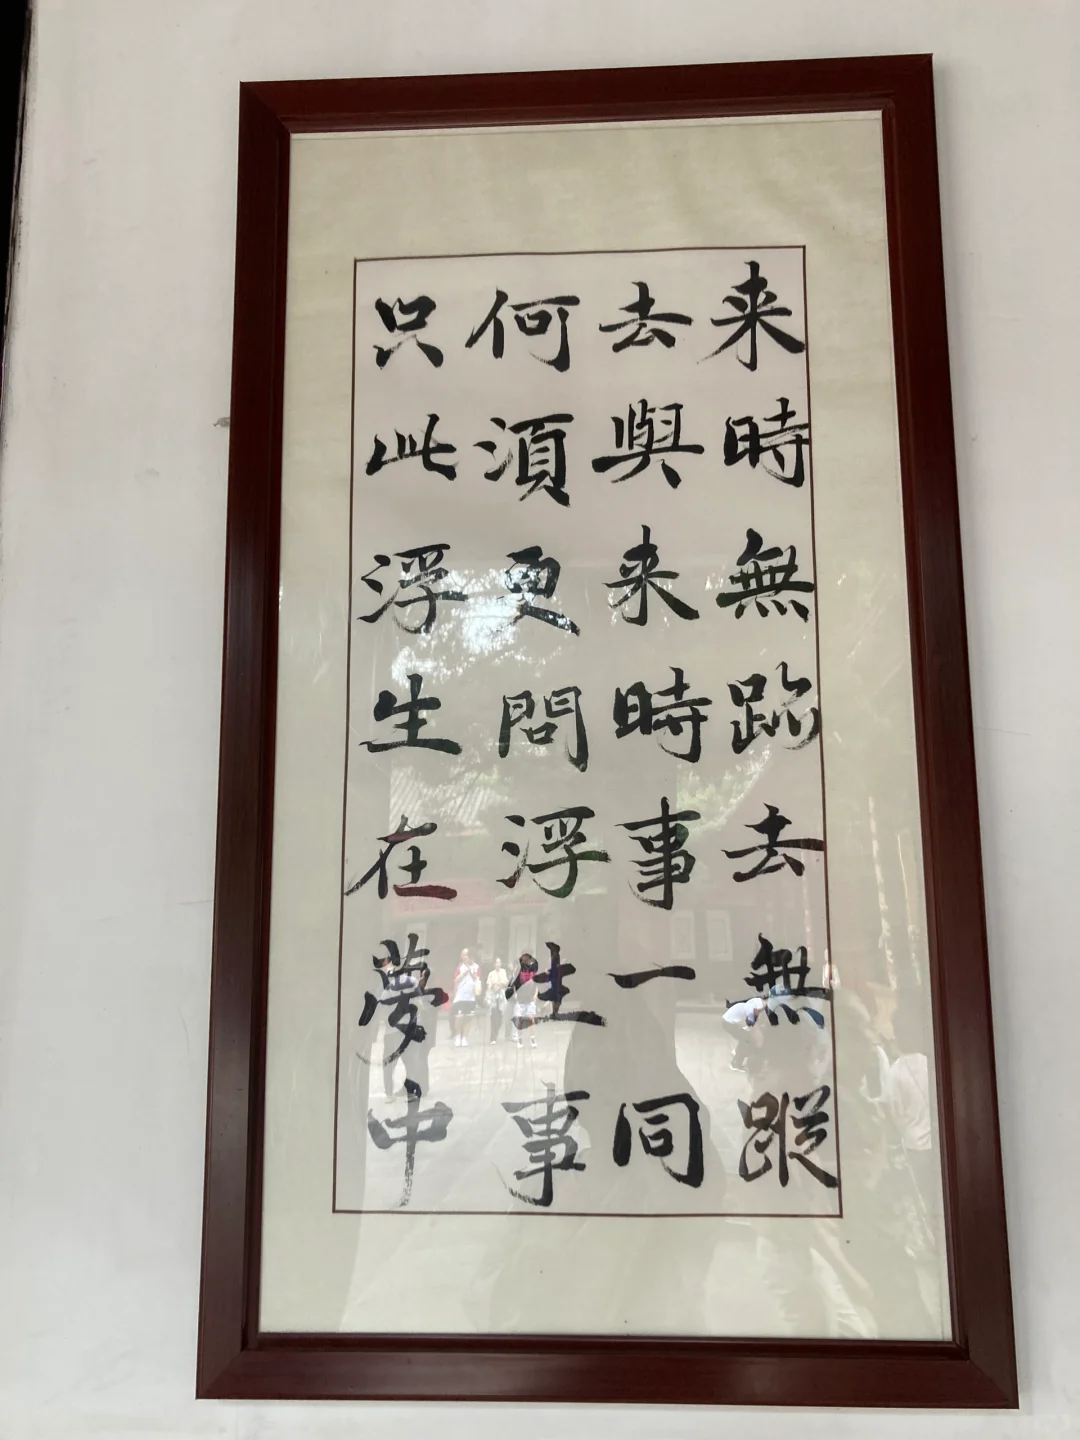 来時無跡去無蹤
去與来時事一同
何須更問浮生事
只此浮生在夢中